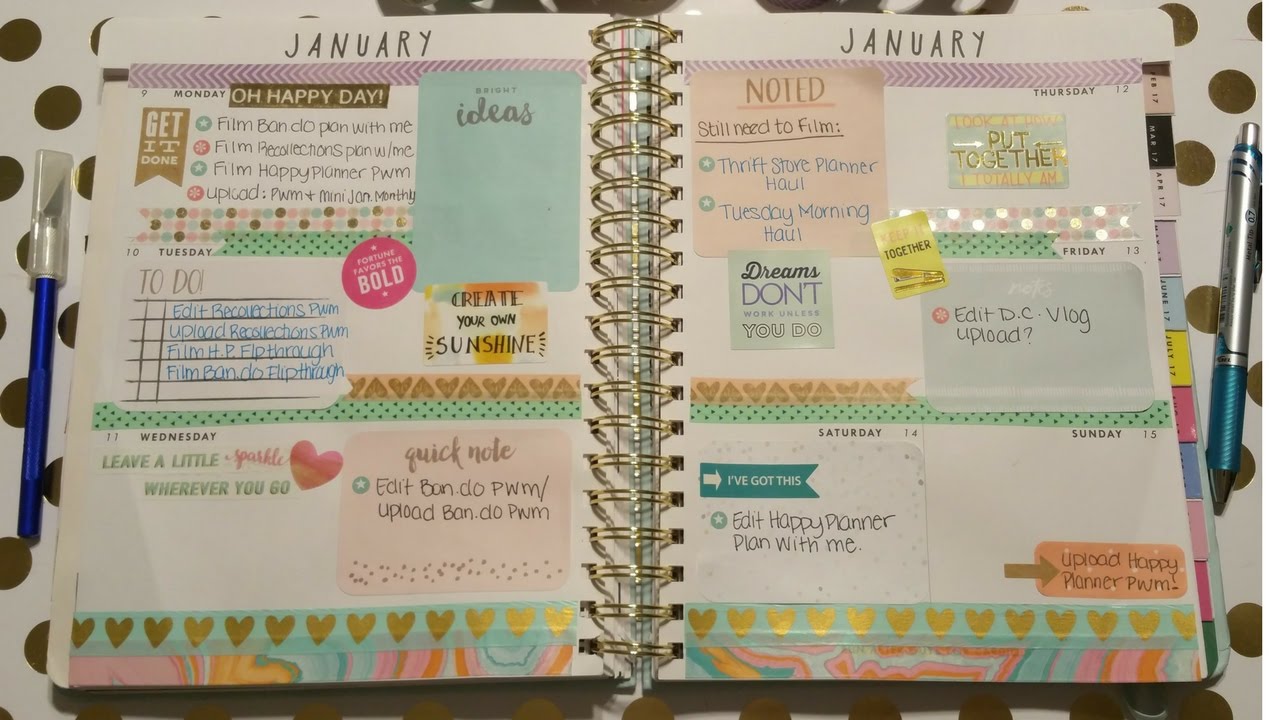 JANUARY
9 MONDAY OH HAPPY DAY!
GET
IT
DONE
Film Ban.do plan with me
Film Recollections plan w/me
Film Happy Planner Pwm
Upload: Pwm + mini Jan. Monthly
BRIGHT
ideas
10 TUESDAY
TO DO!
Edit Recollections Pwm
Upload Recollections Pwm
Film H.P. Flpthrough
Film Ban.do Flipthrough
FORTUNE
FAVORS THE
BOLD
CREATE
YOUR OWN
SUNSHINE
11 WEDNESDAY
LEAVE A LITTLE sparkle
WHEREVER YOU GO
quick note
Edit Ban.do Pwm/
Upload Ban.do Pwm
JANUARY
NOTED
Still need to Film:
Thrift Store Planner
Haul
Tuesday Morning
Haul
THURSDAY 12
LOOK AT HOW
PUT
TOGETHER
I TOTALLY AM
KEEP IT
TOGETHER
FRIDAY 13
Dreams
DON'T
WORK UNLESS
YOU DO
notes
Edit D.C. Vlog
Upload?
SATURDAY 14
I'VE GOT THIS
Edit Happy Planner
Plan with me.
SUNDAY 15
Upload Happy
Planner Pwm-
FEB 17
MAR 17
APR 17
JUNE 17
JULY 17